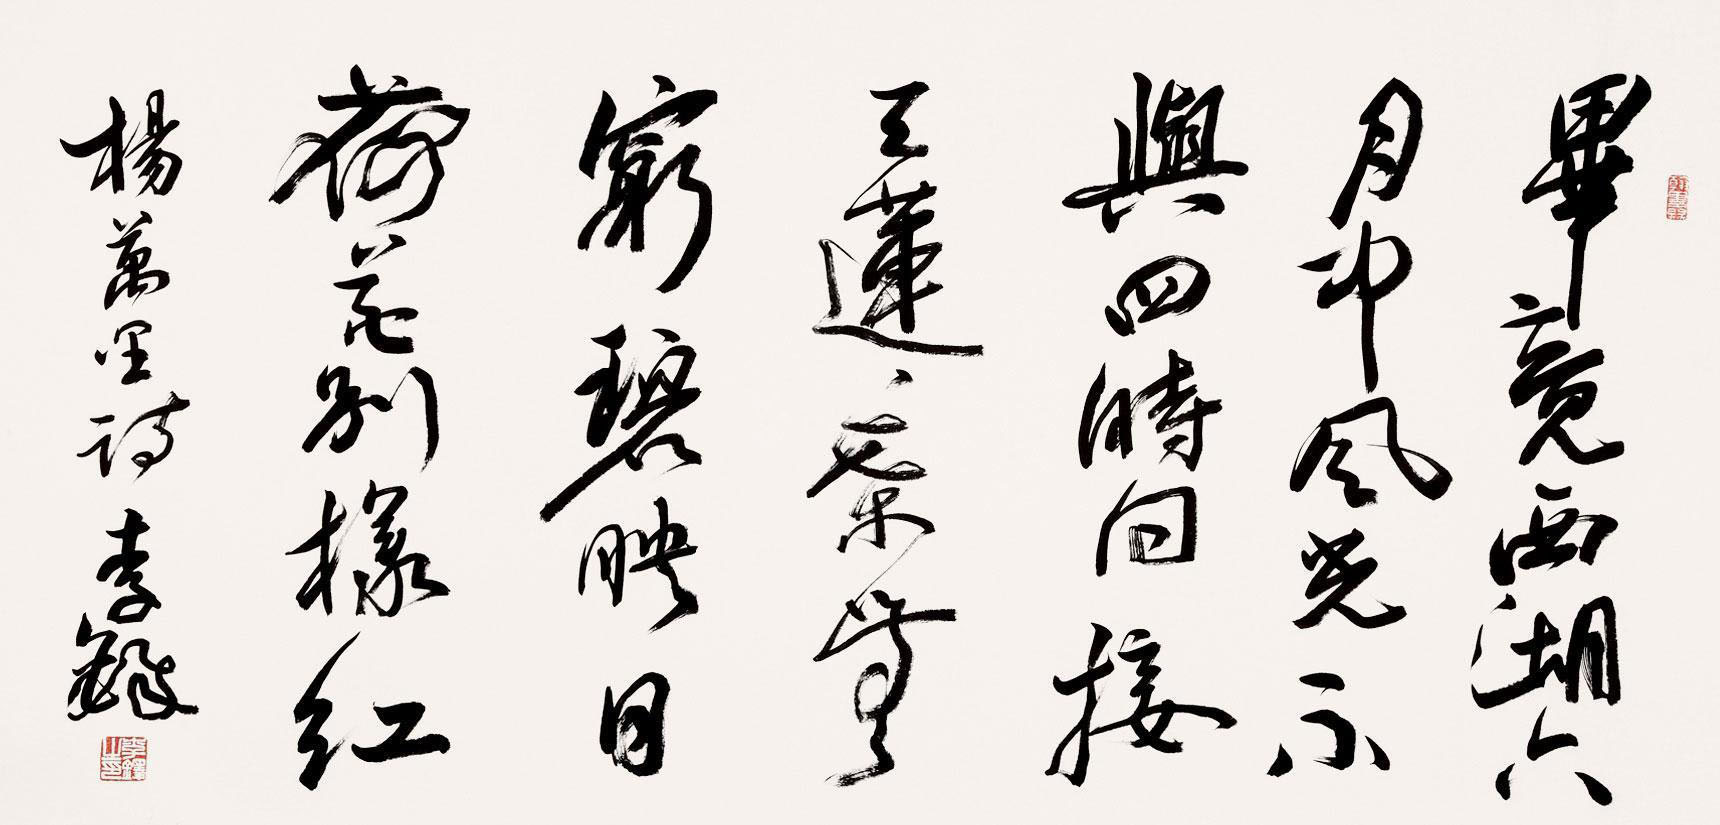 畢竟西湖六
月中風光不
與四時同接
天蓮葉無
窮碧映日
荷花別樣紅
楊萬里詩 李鐸
李鐸之印